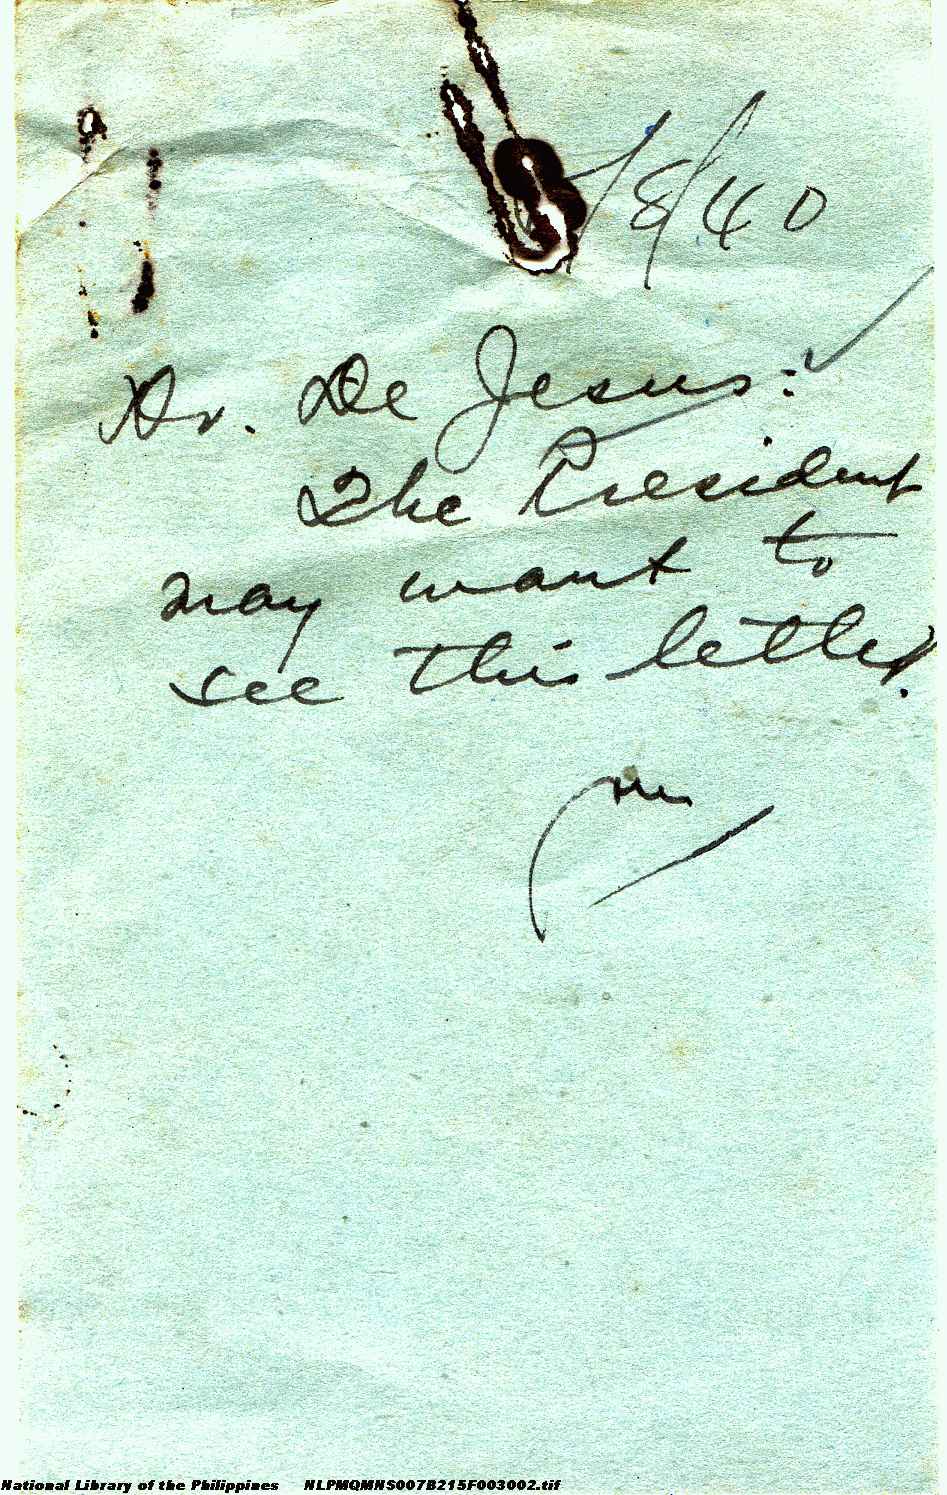 /8/40
Dr. De Jesus:
The President
may want to
see this letter.
National Library of the Philippines NLPMQMNS007B215F003002.tif